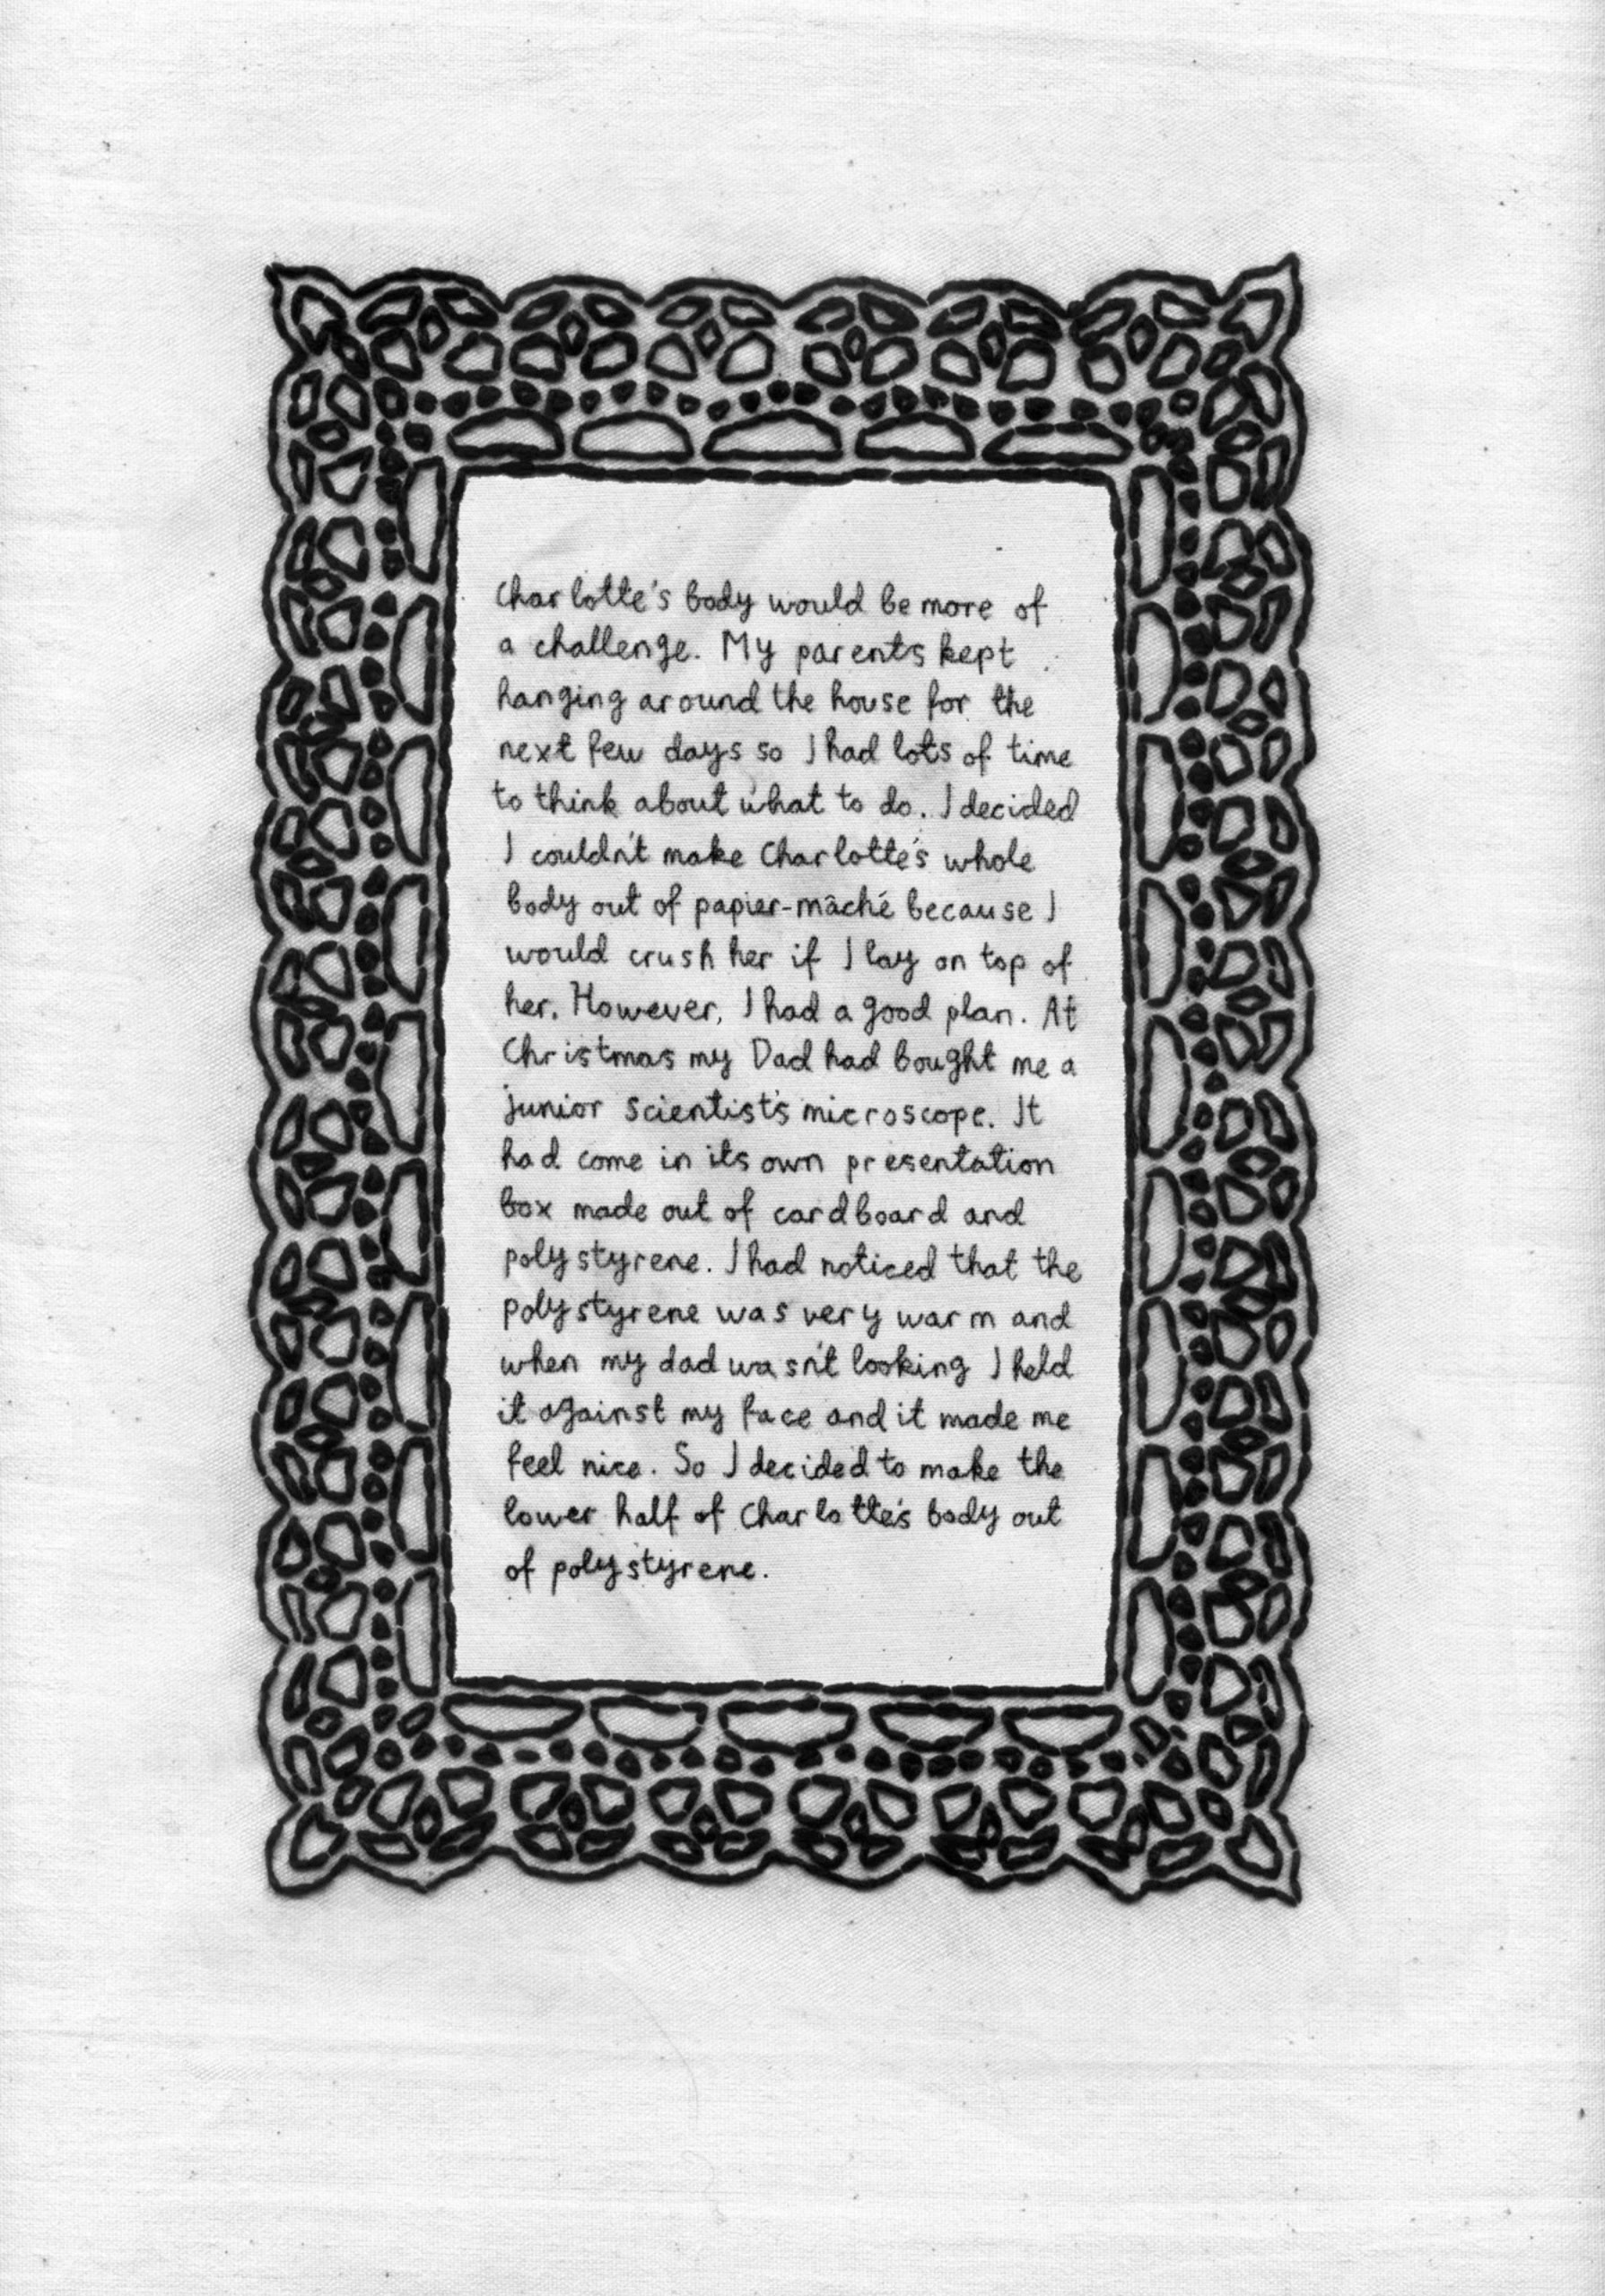 Charlotte's body would be more of
a challenge. My parents kept
hanging around the house for the
next few days so I had lots of time
to think about what to do. I decided
I couldn't make Charlotte's whole
body out of papier-mâché because I
would crush her if I lay on top of
her. However, I had a good plan. At
Christmas my Dad had bought me a
junior scientist's microscope. It
had come in its own presentation
box made out of cardboard and
polystyrene. I had noticed that the
polystyrene was very warm and
when my dad wasn't looking I held
it against my face and it made me
feel nice. So I decided to make the
lower half of Charlotte's body out
of polystyrene.